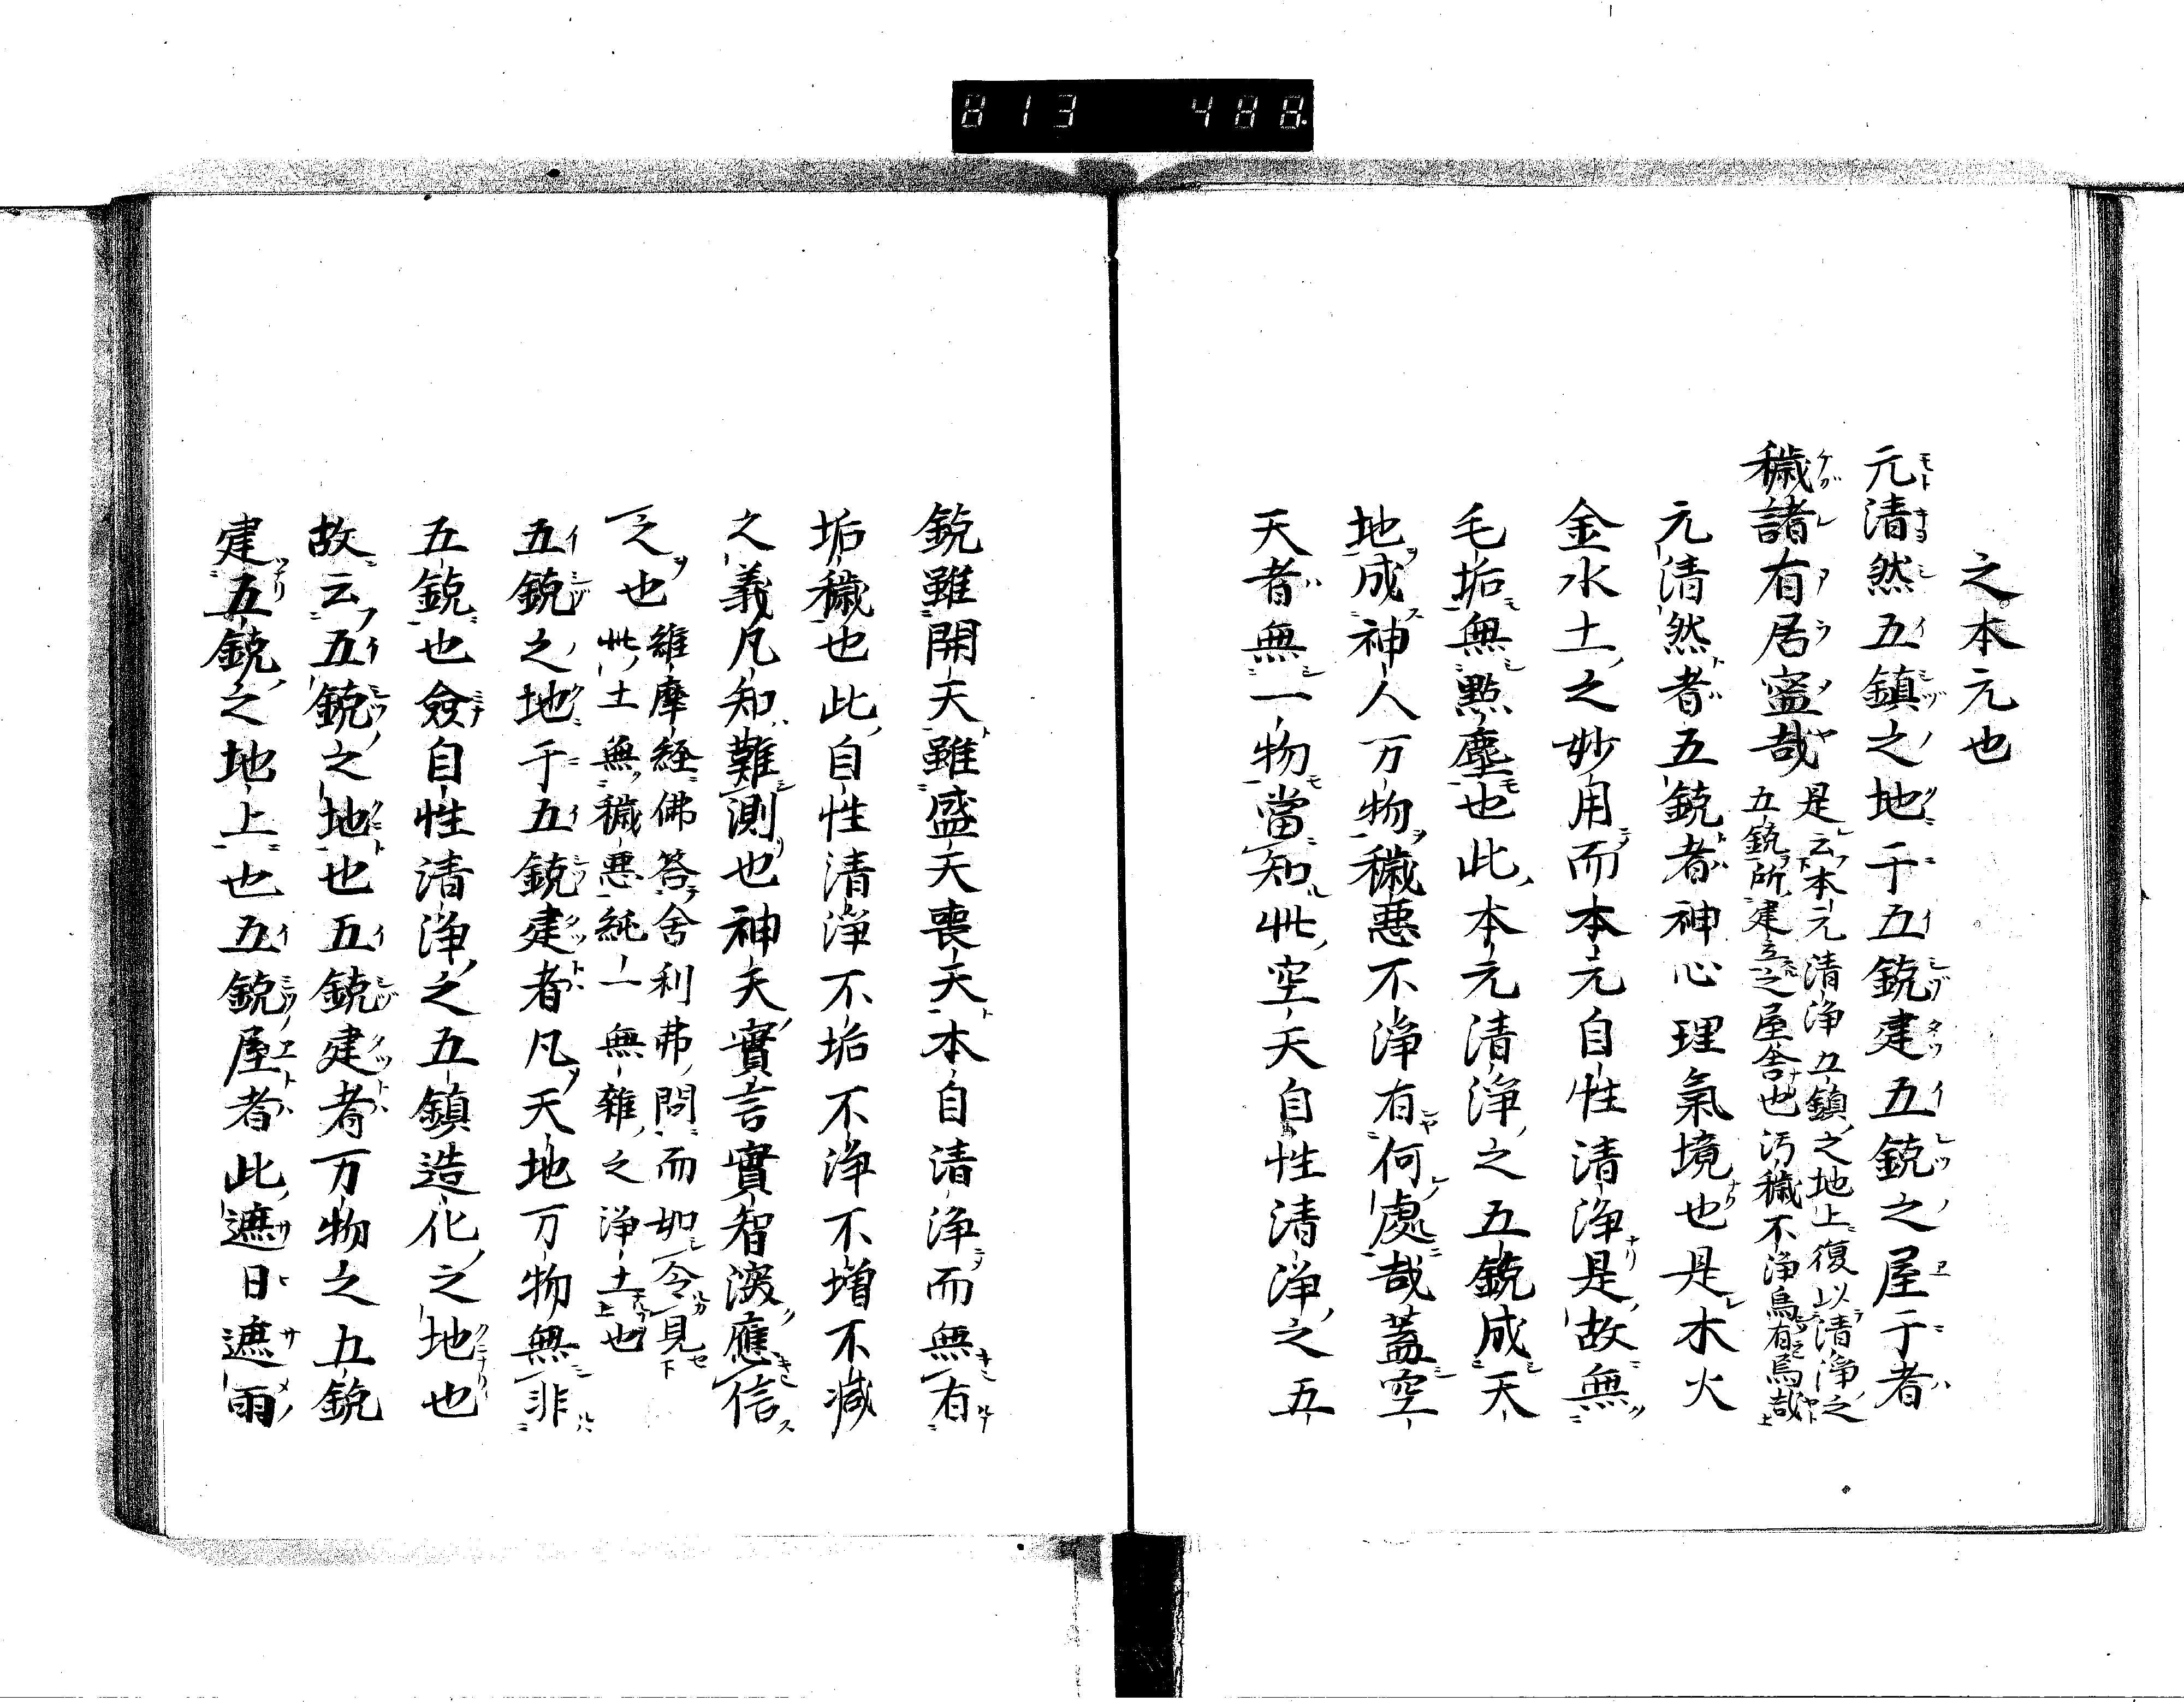 813 488
之本元也
元清然五鎮之地于五鋭建五鋭之屋于者
穢諸有居寍哉
是云本元清浄五鎮之地上復以清浄之
五鋭所建立之屋舎也汚穢不浄烏有焉哉
元清然者五鋭者神心理氣境也是木火
金水土之妙用而本元自性清浄是故無
毛垢無點塵也此本元清浄之五鋭成天
地成神人万物穢悪不浄有何處哉蓋空
天者無一物當知此空天自性清浄之五
鋭雖開天雖盛天喪天本自清浄而無有
垢穢也此自性清浄不垢不浄不増不减
之義凡知難測也神夫實言實智深應信
之也
維摩経佛答舎利弗問而如令見
此土無穢悪純一無雜之浄土也
五鋭之地于五鋭建者凡天地万物無非
五鋭也僉自性清浄之五鎮造化之地也
故云五鋭之地也五鋭建者万物之五鋭
建五鋭之地上也五鋭屋者此遮日遮雨